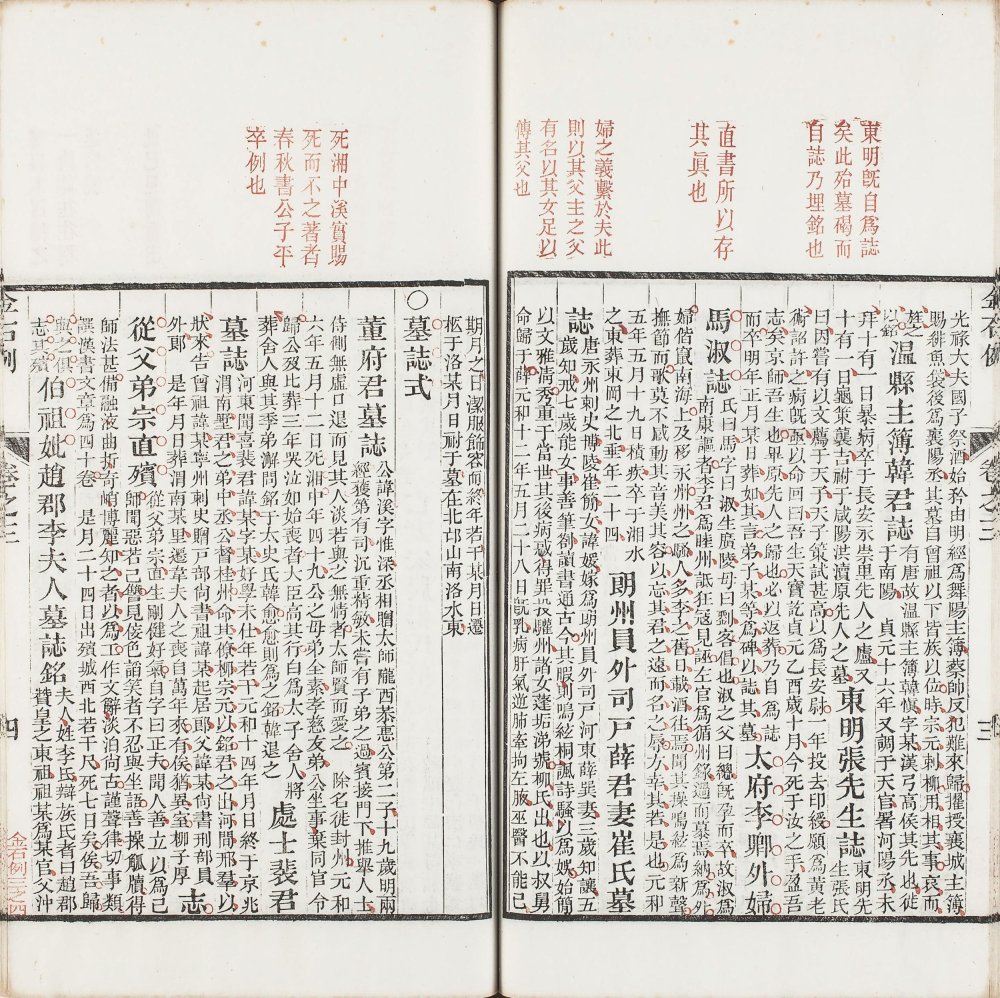 東明旣自爲誌
矣此殆墓碣而
自誌乃埋銘也
直書所以存
其眞也
婦之義繫於夫此
則以其父主之父
有名以其女足以
傳其父也
光祿大夫國子祭酒始矜由明經爲舞陽主簿蔡師反犯難來歸擢授襄城主簿
賜緋魚袋後爲襄陽丞其墓自曾祖以下皆族以位時宗元刺柳用相其事哀而
以銘
溫縣主簿韓君誌
有唐故溫縣主簿韓愼字某漢弓高侯其先也徙
于南陽 貞元十六年又調于天官署河陽丞未
拜十有一日暴病卒于長安永崇里先人之廬又
十有一日龜筴襲吉祔于咸陽洪瀆原先人之墓
東明張先生誌
東明先
生張氏
曰因嘗有以文薦于天子天子策試甚高以爲長安尉一年投去印綬願爲黃老
術詔許之病旣亟以命回曰吾生天寶訖貞元乙酉歲十月今死于汝之手盈吾
志矣京師吾生也畢原先人之歸也必以返葬乃自爲誌
而卒明年正月某日葬如其言弟子某等爲碑以誌其墓
太府李卿外婦
馬淑誌
氏曰馬字曰淑生廣陵母曰劉客倡也淑之父曰總旣孕而卒故淑爲
南康謳者李君爲睦州詆狂寇見誣左官爲循州錄過而慕焉納爲外
婦偕竄南海上及移永州州之騷人多李之舊日載酒往焉聞其操鳴絃爲新聲
撫節而歌莫不感動其音美其容以忘其君之遠而名之辱方幸其若是也元和
五年五月十九日積疾卒于湘水
之東葬東岡之北垂年二十四
朗州員外司戶薛君妻崔氏墓
誌
唐永州刺史博陵崔簡女諱媛嫁爲朗州員外司戶河東薛巽妻三歲知讓五
歲知戒七歲能女事善筆劄讀書通古今其暇則鳴絃桐諷詩騷以爲娛始簡
以文雅淸秀重于當世其後病惑得罪投驩州諸女蓬垢涕號柳氏出也以叔舅
命歸于薛元和十二年五月二十八日旣乳病肝氣逆肺牽拘左腋巫醫不能已
死湘中溪實賜
死而不之著者
春秋書公子平
卒例也
期月之日潔服飾容而終年若干某月日遷
柩于洛某月日祔于墓在北邙山南洛水東
〇墓誌式
董府君墓誌
公諱溪字惟深丞相贈太師隴西恭惠公第二子十九歲明兩
經獲第有司沉重精敏未嘗有子弟之過賓接門下推舉人士
侍側無虛口退而見其人淡若與之無情者太師賢而愛之 除名徙封州元和
六年五月十二日死湘中年四十九公之母弟全素孝慈友弟公坐事棄同官令
歸公歿比葬三年哭泣如始喪者大臣高其行白爲太子舍人將
葬舍人與其季弟澥問銘于太史氏韓愈愈則爲之銘韓退之
處士裴君
墓誌
河東聞喜裴君諱某字某好學未仕年若干元和十四年月日終于京兆
渭南墅君之弟中丞公督桂州命其僚柳宗元以銘君之出河間邢羣以
狀來告曾祖諱某寧州刺史贈戶部尙書祖諱某起居郎父諱某尙書刑部員
外郎 是年月日葬渭南某里邐韋夫人之喪自萬年來有俟猶異室柳子厚
志
從父弟宗直殯
從父弟宗直生剛健好氣自字曰正夫聞人善立以爲己
師聞惡若己讐見佞色諂笑者不忍與坐語善操觚牘得
師法甚備融液曲折奇峭博麗知之者以爲工作文辭淡泊尙古謹聲律切事類
譔漢書文章爲四十卷 是月二十四日出殯城西北若干尺死七日矣俟吾歸
與之俱
志其殯
伯祖妣趙郡李夫人墓誌銘
夫人姓李氏辯族氏者曰趙郡
贊皇之東祖祖某爲某官父沖
金石例
卷之三
三
四
金石例三之四